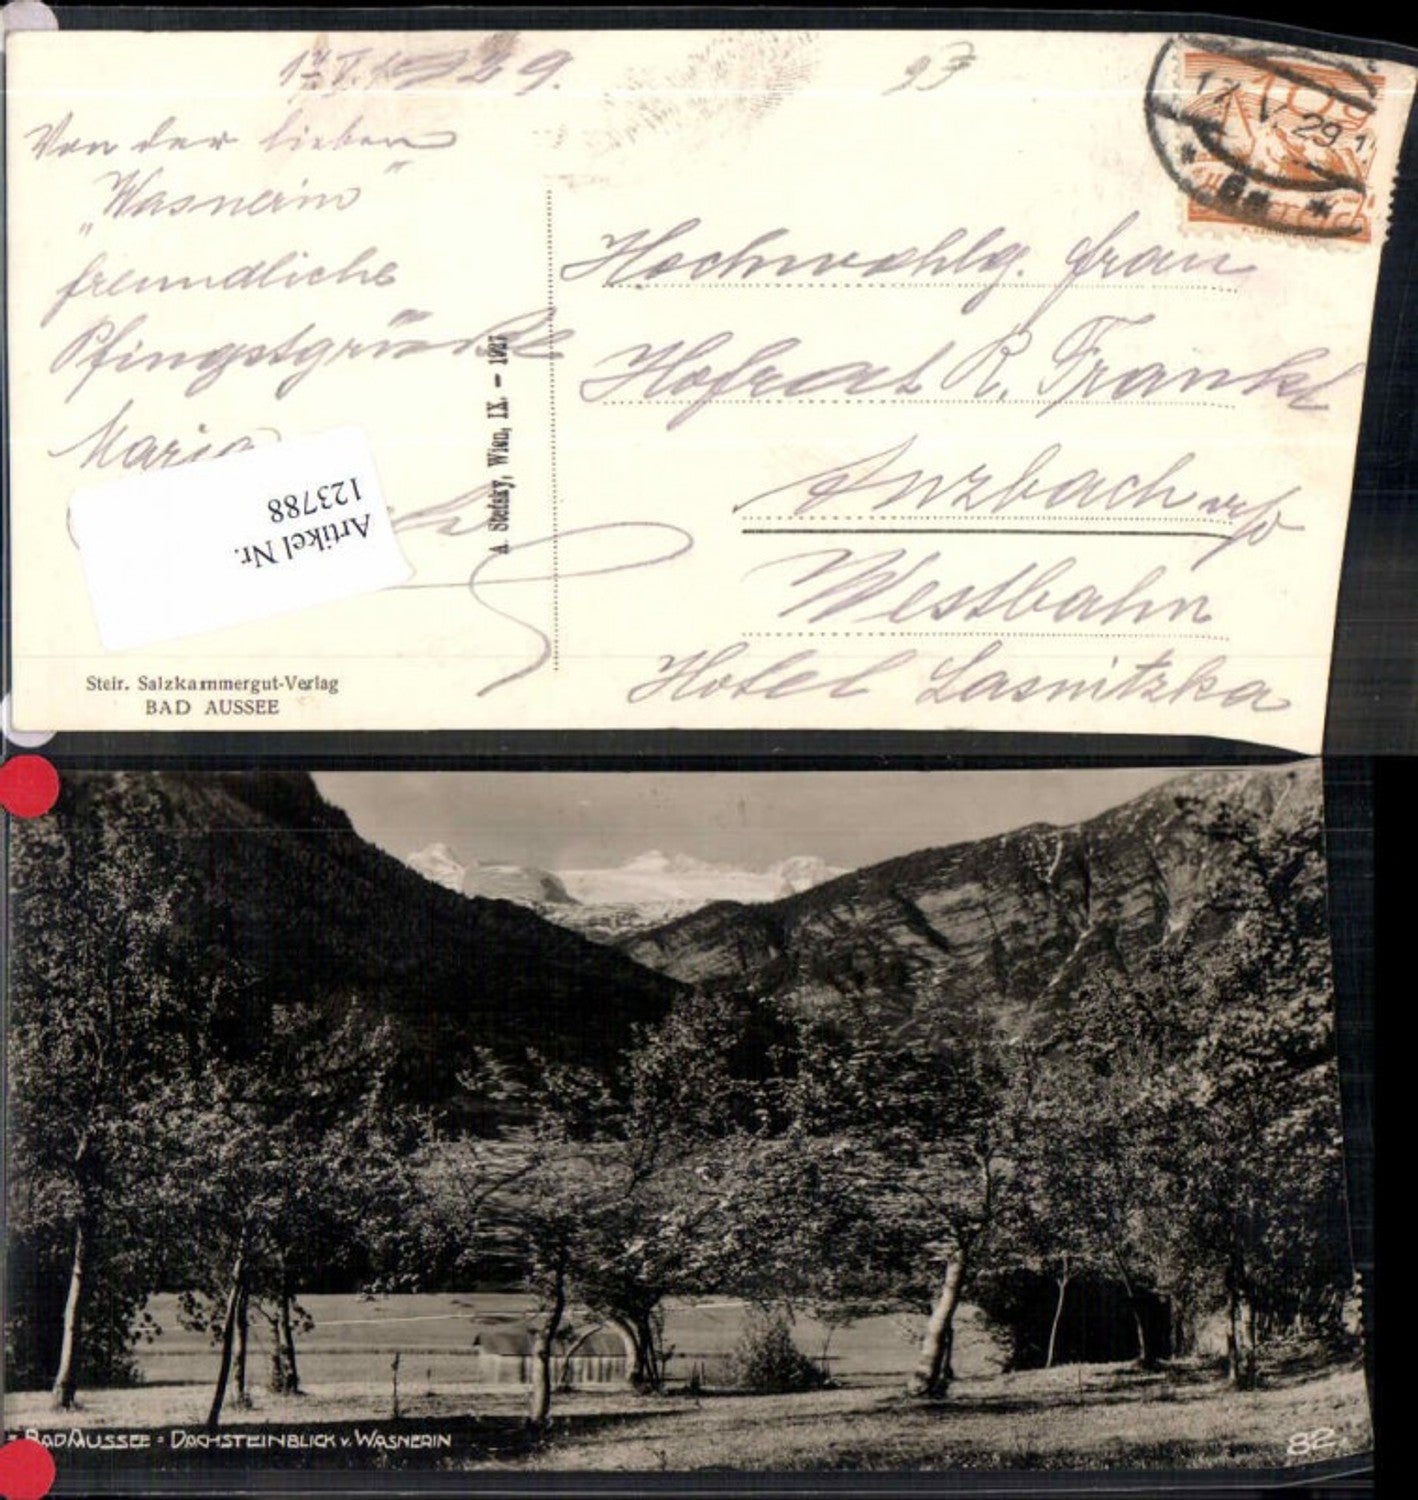 17. V. 1929.
93
Von der lieben
"Wasnerin"
freundliche
Pfingstgrüße
Maria
Artikel Nr.
123788
Steir. Salzkammergut-Verlag
BAD AUSSEE
A. Stefsky, Wien, IX. - 1927
17. V. 29
Hochwohlg. Frau
Hofrat R. Frankl
Anzbach
Westbahn
Hotel Lasnitzka
BAD AUSSEE = DACHSTEINBLICK v. WASNERIN
82